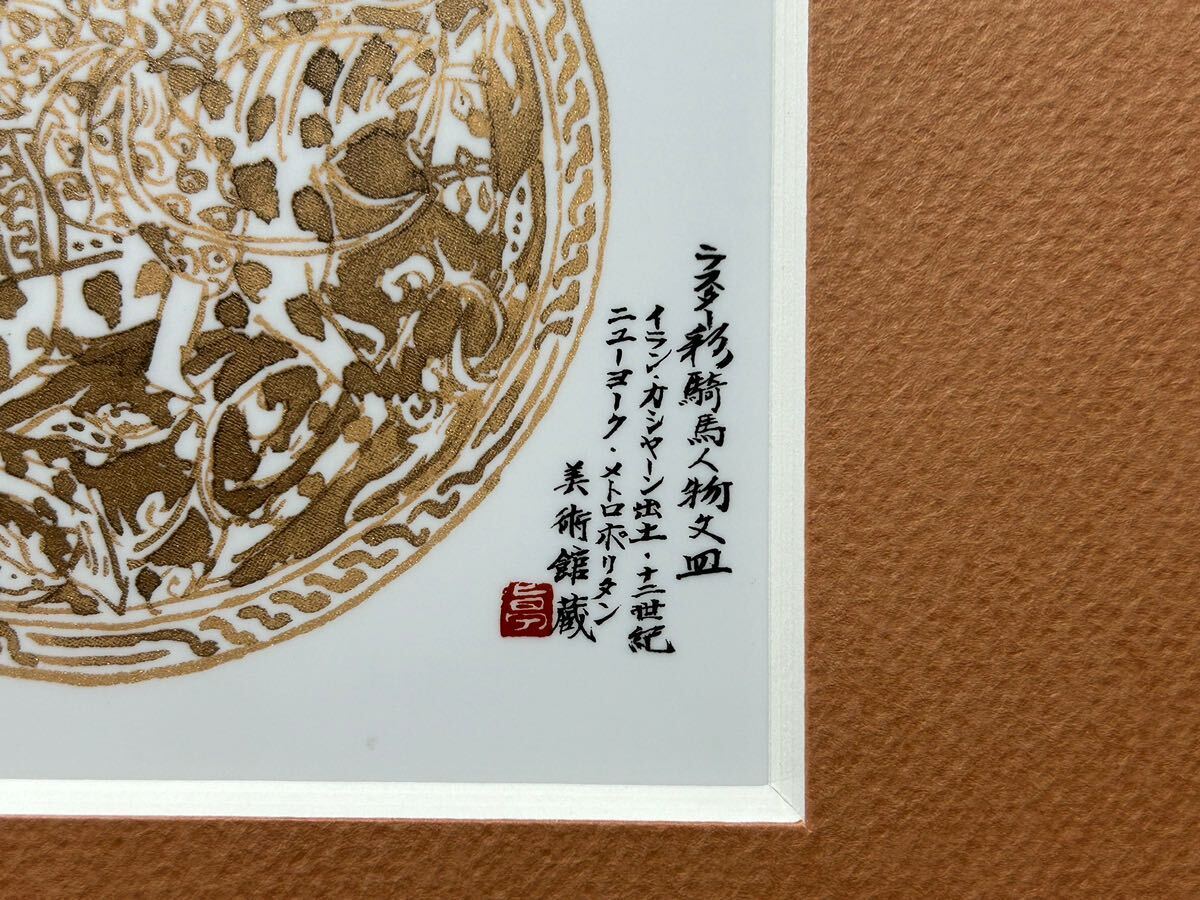 ラスター彩騎馬人物文皿
イラン・カシャーン出土・十二世紀
ニューヨーク・メトロポリタン
美術館蔵